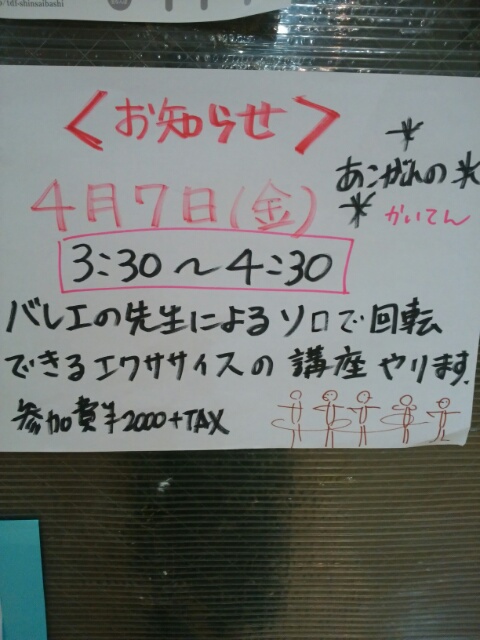 /1d3-shinsaibashi
<お知らせ>
あこがれの
かいてん
4月7日(金)
3:30～4:30
バレエの先生によるソロで回転
できるエクササイズの講座やります。
参加費¥2000+TAX